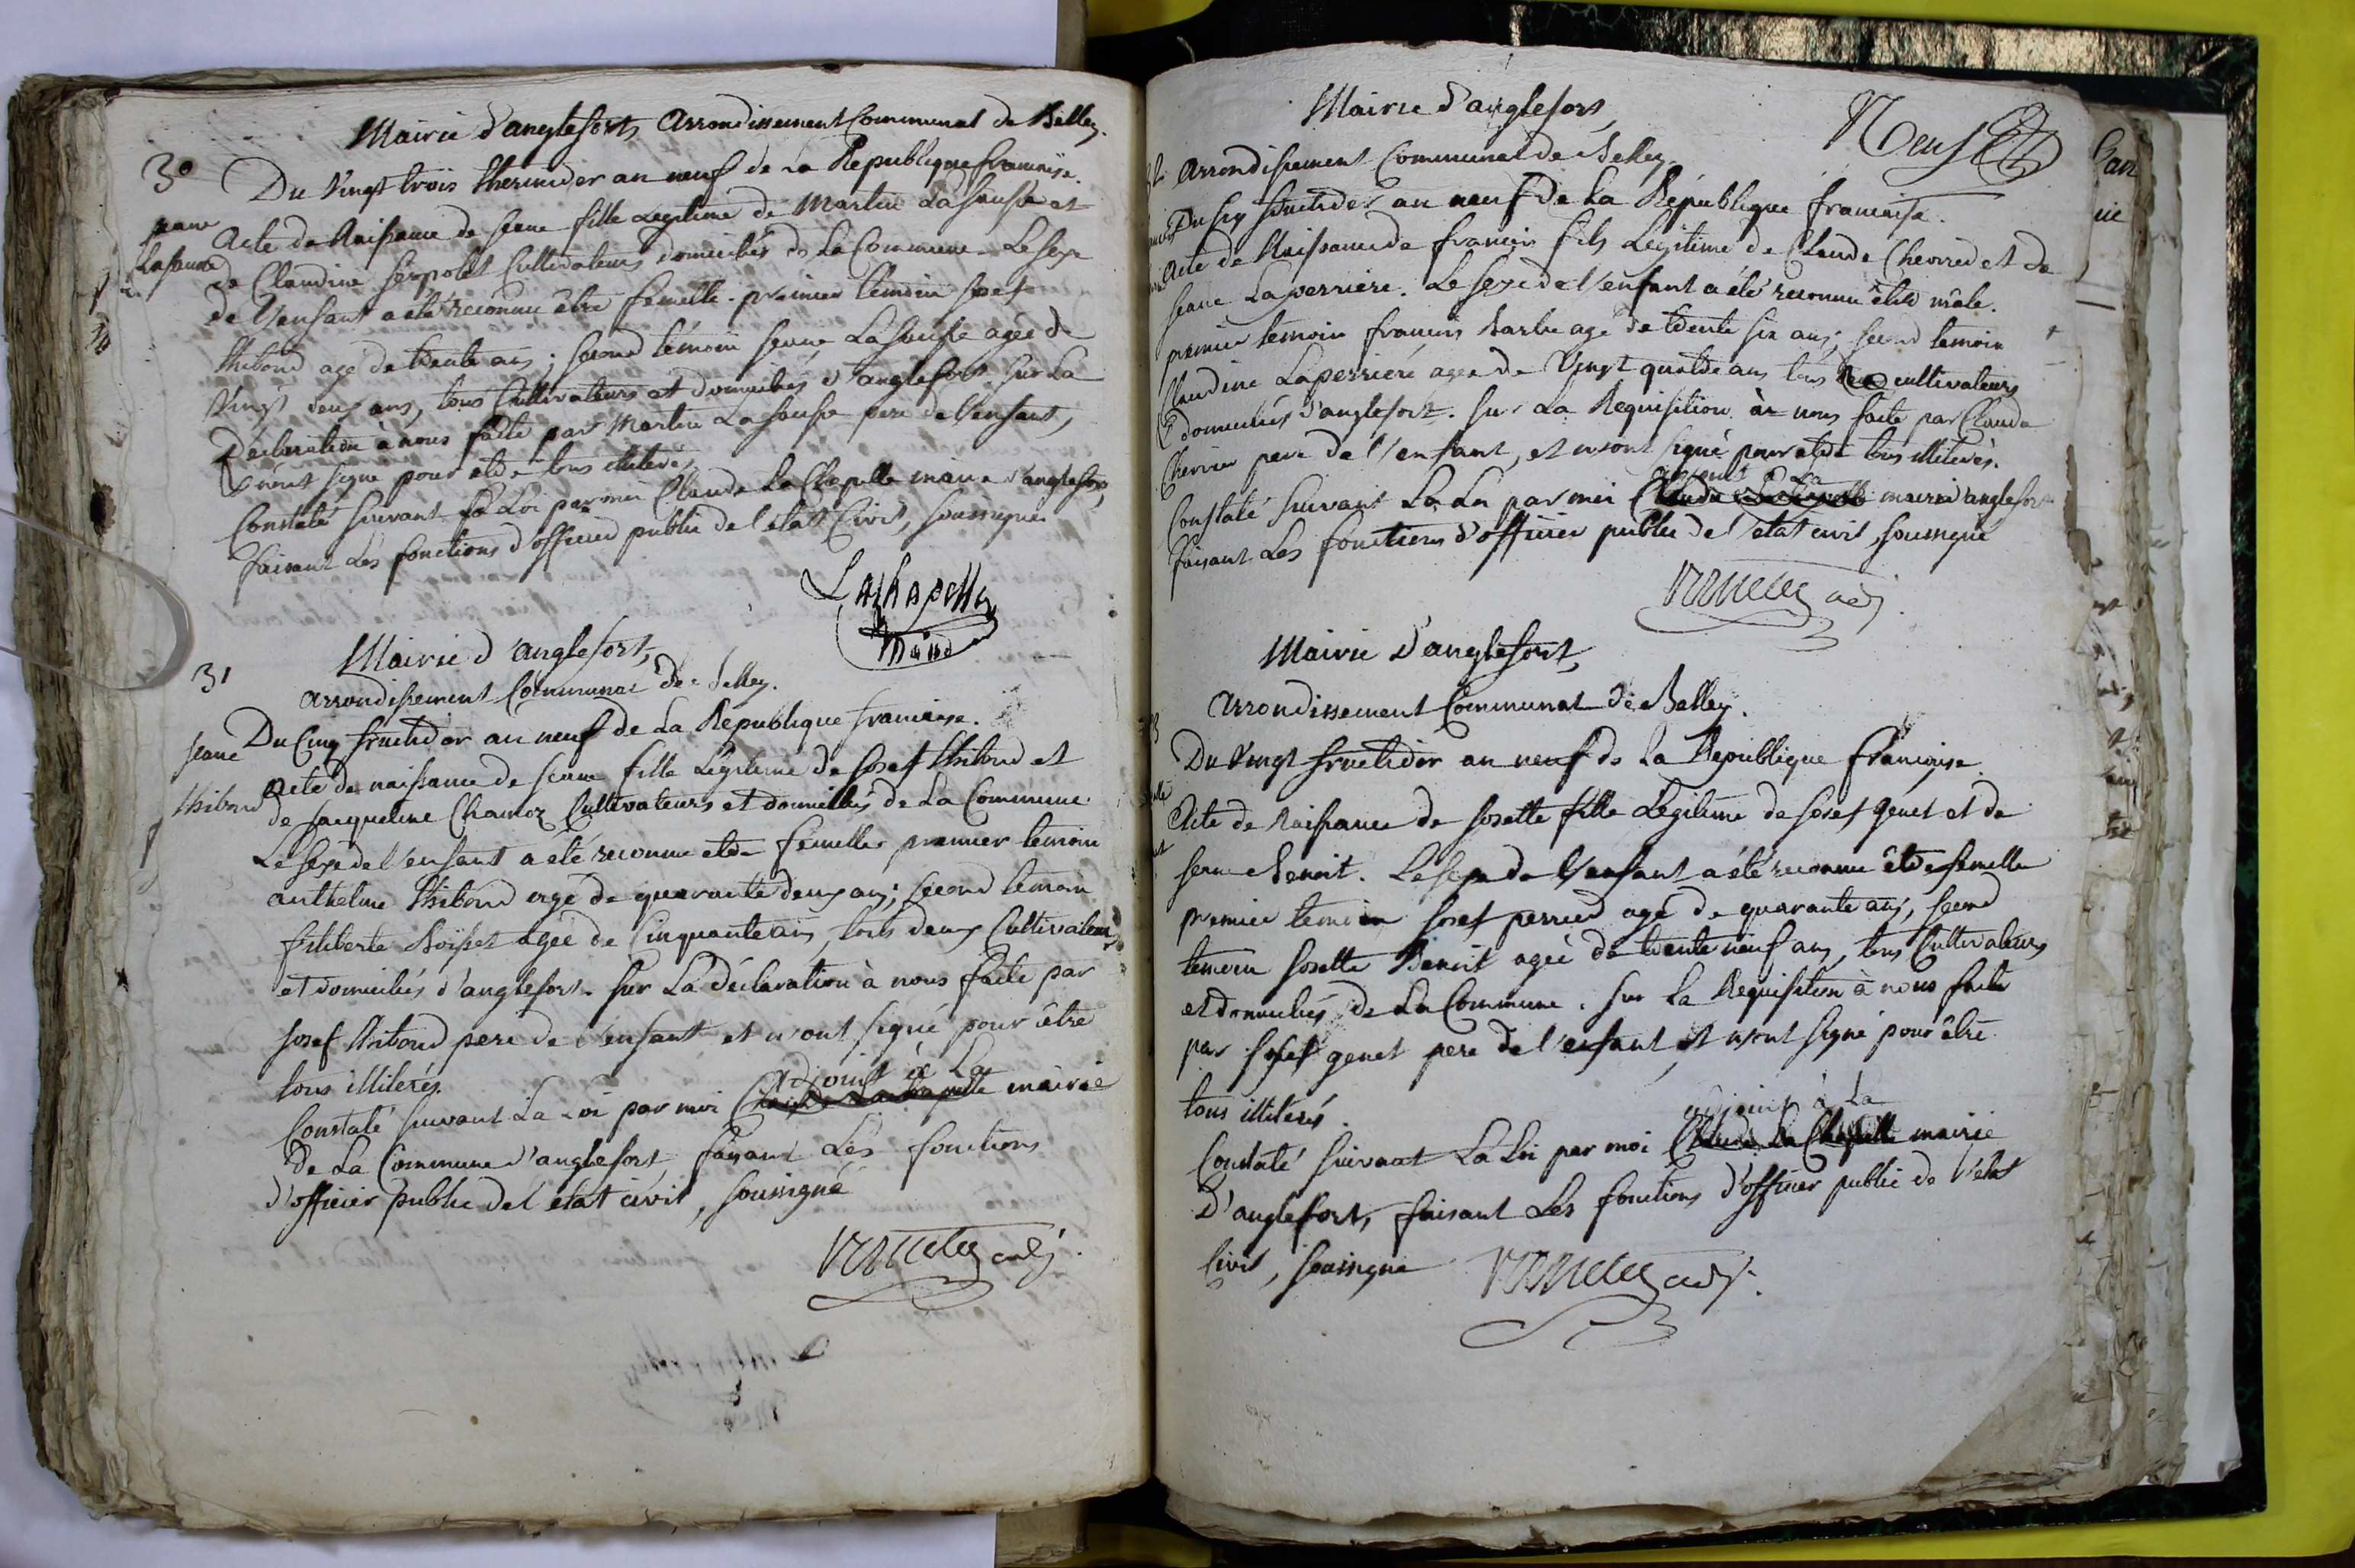 Mairie d'anglefort, arrondissement Communal de Belley.
30
Du Vingt trois thermidor an neuf de la Republique francaise.
jeane
Lasausse
Acte de Naissance de jeane fille Legitime de Martin Lasausse et
de Claudine serpolet Cultivateurs domiciliés de la Commune. Le sexe
de l'enfant a été reconnu être femelle. premier temoin josef
thiboud agé de trente ans; second témoin jeane Lasausse agée de
Vingt deux ans, tous Cultivateurs et domiciliés d'anglefort. sur la
Declaration à nous faite par Martin Lasausse pere de l'enfant,
n'ont signé pour etre tous illiterés.
Constaté suivant la Loi par moi Claude La Chapelle maire d'anglefort,
faisant Les fonctions d'officier public de l'état Civil, soussigné
Lachapelle
Maire
31
Mairie d'anglefort,
arrondissement Communal de Belley.
jeane
thiboud
Du Cinq fructidor an neuf de La Republique francaise.
Acte de naissance de jeane fille Legitime de josef thiboud et
de jacqueline Chamoz Cultivateurs et domiciliés de La Commune.
Le sexe de l'enfant a été reconnu etre femelle. premier temoin
anthelme thiboud agé de quarante deux ans; second temoin
filiberte Boisset agée de Cinquante ans, tous deux Cultivateurs
et domiciliés d'anglefort. sur La déclaration à nous faite par
josef thiboud pere de l'enfant et n'ont signé pour être
tous illiterés.
adjoint à La
Constaté suivant La Loi par moi Claude La Chapelle mairie
de La Commune d'anglefort, faisant Les fonctions
d'officier public de l'état civil, soussigné
adj.
Mairie d'anglefort,
Neuf
arrondissement Communal de Belley.
Du six fructidor an neuf de La République francaise.
Acte de Naissance de francois fils Legitime de Claude Cherrier et de
jeane Laperriere. Le sexe de l'enfant a été reconnu être mâle.
premier temoin francois Barbe agé de trente six ans; second temoin
Claudine Laperriere agée de Vingt quatre ans tous deux cultivateurs
domiciliés d'anglefort. sur La Requisition à nous faite par Claude
Cherrier pere de l'enfant, et n'ont signé pour etre tous illiterés.
adjoint à La
Constaté suivant La Loi par moi Claude La Chapelle mairie d'anglefort
faisant Les fonctions d'officier public de l'état civil, soussigné
adj.
Mairie d'anglefort,
arrondissement Communal de Belley.
Du vingt fructidor an neuf de La Republique francaise.
Acte de Naissance de josette fille Légitime de josef genet et de
jeane Benoit. Le sexe de l'enfant a été reconnu être femelle
premier temoin josef perrier agé de quarante ans, second
temoin josette Benoit agée de trente neuf ans, tous Cultivateurs
et domiciliés de La Commune. sur La Requisition à nous faite
par josef genet pere de l'enfant, et n'ont signé pour être
tous illiterés.
adjoint à La
Constaté suivant La Loi par moi Claude La Chapelle mairie
D'anglefort, faisant Les fonctions d'officier public de l'état
Civil, soussigné
adj.